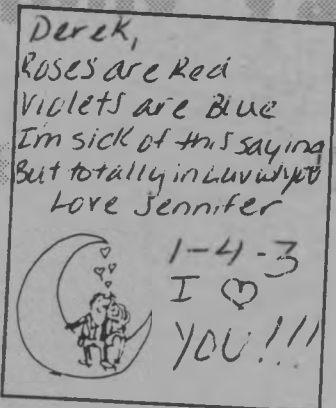 Derek,
Roses are Red
Violets are Blue
I'm sick of this saying
But totally in Luv w/you
Love Jennifer
1-4-3
I ♡
YOU!!!